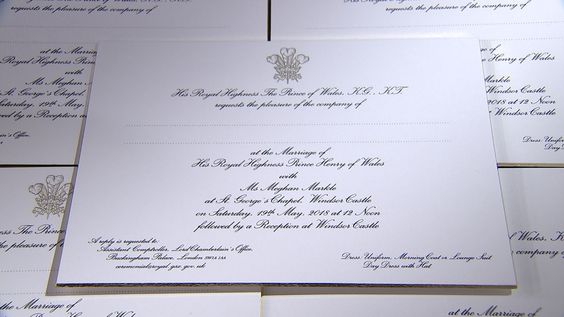 requests the pleasure of the company of
His Royal Highness The Prince of Wales, K.G., K.T.
requests the pleasure of the company of
at the Marriage of
His Royal Highness Prince Henry of Wales
with
Ms Meghan Markle
at St. George's Chapel, Windsor Castle
on Saturday, 19th May, 2018 at 12 Noon
followed by a Reception at Windsor Castle
A reply is requested to:
Assistant Comptroller, Lord Chamberlain's Office,
Buckingham Palace, London SW1A 1AA
ceremonial@royal.gsx.gov.uk
Dress: Uniform, Morning Coat or Lounge Suit
Day Dress with Hat
at the Marriage of
Royal Highness Prince
with
Ms Meghan
St. George's Chapel,
Saturday, 19th May,
by a Reception at
of Wales
Markle
Windsor Castle
2018 at 12 Noon
Windsor Castle
Dress: Uniform
Day Dress
His Royal Highness The
requests the pleasure of
at the Marriage of
of Wales, K.G., K.T.
company of